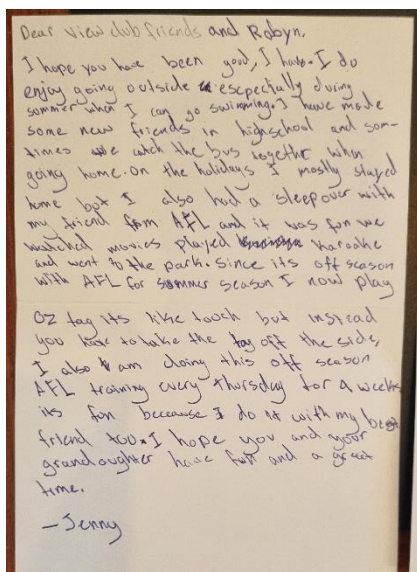 Dear View club friends and Robyn,
I hope you have been good, I have. I do
enjoy going outside espectially during
summer when I can go swimming. I have made
some new friends in highschool and som-
times we catch the bus togethr when
going home. On the holidays I mostly stayed
home but I also had a sleepover with
my friend from AFL and it was fun we
watched movies played karaoke
and went to the park. Since its off season
with AFL for summer season I now play
Oz tag its like touch but instead
you have to take the tag off the side,
I also am doing this off season
AFL training every Thursday for 4 weeks
its fun beccause I do it with my best
friend too. I hope you and your
grandaughter have fun and a great
time.
– Jenny